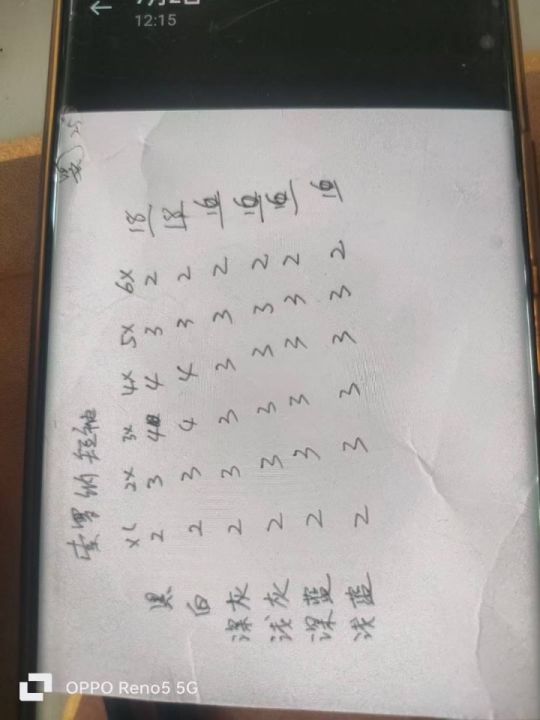 7月2日
12:15
25
索罗纳短袖
XL 2X 3X 4X 5X 6X
黑 2 3 4 4 3 2 18
白 2 3 4 4 3 2 18
深灰 2 3 3 3 3 2 16
浅灰 2 3 3 3 3 2 16
深蓝 2 3 3 3 3 2 16
浅蓝 2 3 3 3 3 2 16
OPPO Reno5 5G